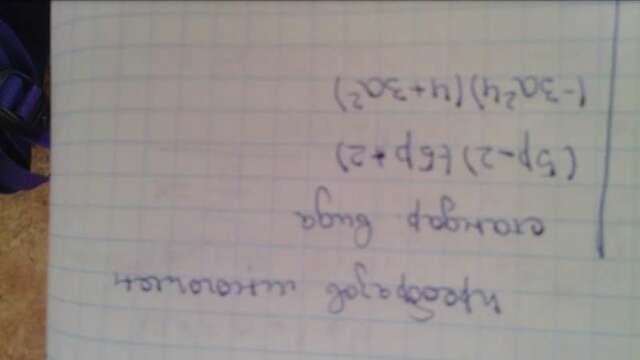 преобразов многочлен
стандар. вида
(5p-2)(-5p+2)
(-3a²4)(4+3a²)